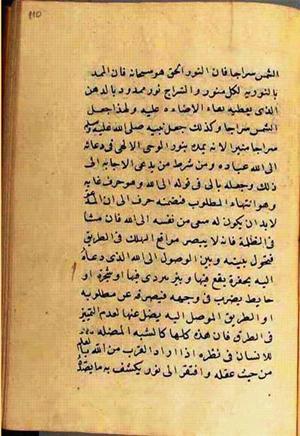 110
الشمس سراجا فان النور الحق هو سبحانه فان الممد
بالنورية لكل منور والسراج نور ممدود بالدهن
الذى يعطيه بقاء الاضاءه عليه ولهذا جعل
الشمس سراجا وكذلك جعل نبيه صلى الله عليه وسلم
سراجا منيرا لانه يمده بنور الوحى الالهى فى دعائه
الى الله عباده ومن شرط من يدعى الاجابه الى
ذلك وجعله بالى فى قوله الى الله وهو حرف غايه
وهو انتهاء المطلوب فضمنه حرف الى ان المدعو
لابد ان يكون له سعى من نفسه الى الله فان مشا
فى الظلمة فانه لا يبصر مواقع المهلك فى الطريق
فتحول بينه وبين الوصول الى الله الذى دعاه
اليه بحفرة يقع فيها وبئر يتردى فيها او شجرة او
حايط يضرب فى وجهه فيصرفه عن مطلوبه
او الطريق الموصل اليه يضل عنها لعدم التمييز
فى الطرق فان هذه كلها كالشبه المضله
للانسان فى نظره اذا اراد القرب من الله بالعلم
من حيث عقله وافتقر الى نور يكشف به ما يصده